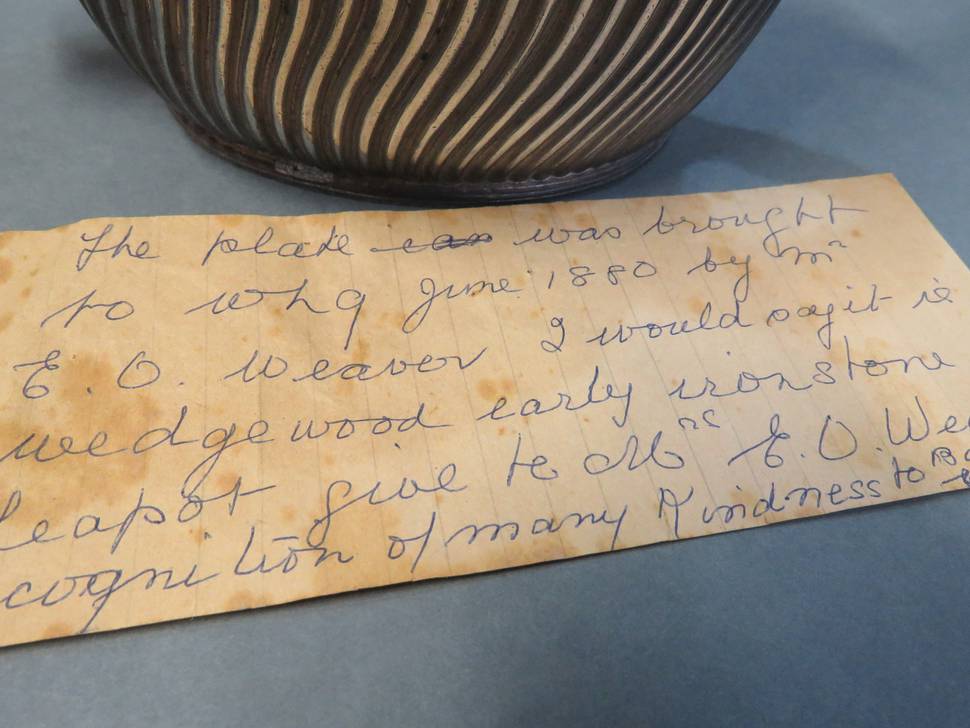 The plate was brought
to whq June 1880 by Mr
E. O. Weaver I would say it is
wedgewood early ironstone
teapot give to Mrs E. O. Wea
cognition of many Kindness to